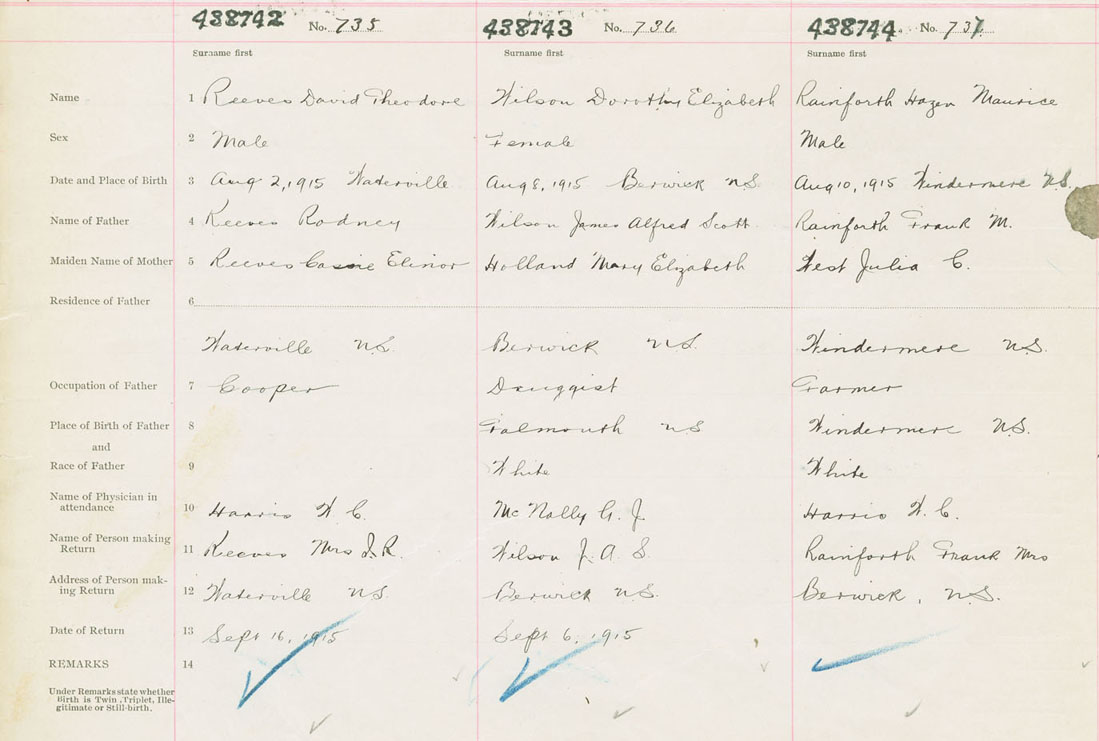 438742 No. 735 438743 No. 736 438744 No. 737
Surname first Surname first Surname first
Name 1 Reeves David Theodore Wilson Dorothy Elizabeth Rainforth Hazen Maurice
Sex 2 Male Female Male
Date and Place of Birth 3 Aug 2, 1915 Waterville Aug 8, 1915 Berwick N.S. Aug 10, 1915 Windermere N.S.
Name of Father 4 Reeves Rodney Wilson James Alfred Scott Rainforth Frank M.
Maiden Name of Mother 5 Reeves Cassie Elinor Holland Mary Elizabeth West Julia C.
Residence of Father 6
Waterville N.S. Berwick N.S. Windermere N.S.
Occupation of Father 7 Cooper Druggist Farmer
Place of Birth of Father 8 Falmouth N S Windermere N.S.
and
Race of Father 9 White White
Name of Physician in
attendance 10 Harris W. C. McNally G. J. Harris W. C.
Name of Person making
Return 11 Reeves Mrs J. R. Wilson J. A. S. Rainforth Frank Mrs
Address of Person mak-
ing Return 12 Waterville N.S. Berwick N.S. Berwick, N.S.
Date of Return 13 Sept 16, 1915 Sept 6, 1915
REMARKS 14
Under Remarks state whether
Birth is Twin, Triplet, Ille-
gitimate or Still-birth.